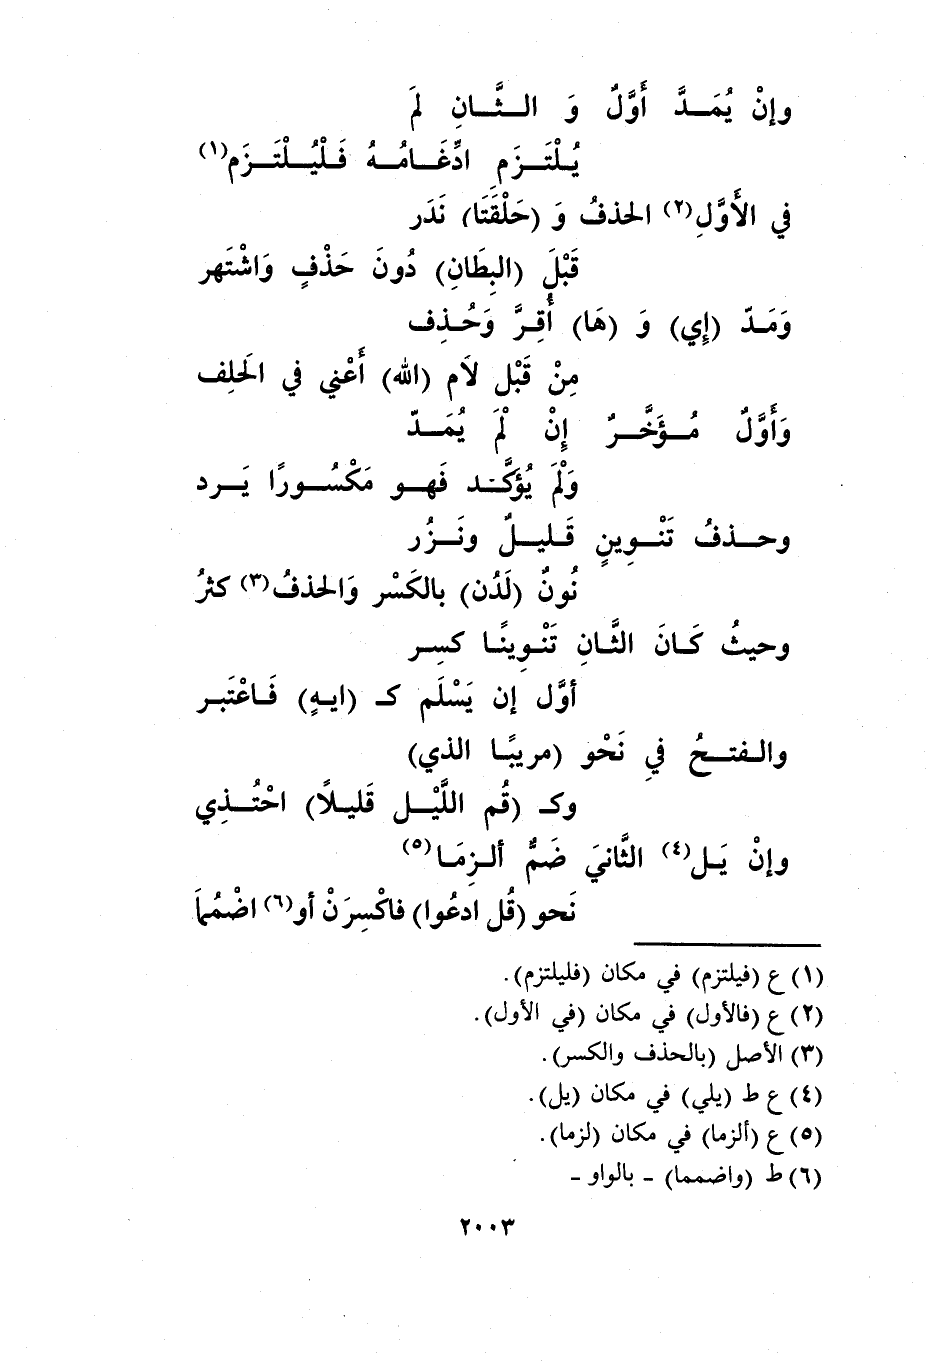 وإنْ يُمَــدَّ أَوَّلٌ وَ الــثَّــانِ لَمْ
يُــلْتَــزَمِ ادِّغَــامُــهُ فَــلْيُــلْتَــزَم(١)
في الأَوَّلِ(٢) الحذفُ وَ (حَلْقَتَا) نَدَر
قَبْلَ (البِطَانِ) دُونَ حَذْفٍ وَاشْتَهر
وَمَـدّ (إِي) وَ (هَا) أُقِـرَّ وَحُـذِف
مِنْ قَبْل لاَم (الله) أَعْني في الحَلِف
وَأَوَّلٌ مُــؤَخَّــرٌ إِنْ لَمْ يُمَــدّ
وَلَمْ يُؤكَّـد فَهـو مَكْسُـورًا يَـرد
وحــذفُ تَنْــوِينٍ قَــلِيــلٌ ونَــزُر
نُونٌ (لَدُن) بالكَسْر وَالحذفُ(٣) كثرُ
وحيثُ كَـانَ الثَّـانِ تَنْـوِينًـا كسِـر
أوَّل إن يَسْلَم كـ (ايـهٍ) فَـاعْتَبـر
والـفتـحُ فِي نَحْو (مريبًـا الذي)
وكـ (قُم اللَّيْـل قَليـلاً) احْتُـذِي
وإنْ يَـل(٤) الثَّانيَ ضَمٌّ ألـزِمَـا(٥)
نَحو (قُل ادعُوا) فاكْسِرَنْ أو(٦) اضْمُمَا
(١) ع (فيلتزم) في مكان (فليلتزم).
(٢) ع (فالأول) في مكان (في الأول).
(٣) الأصل (بالحذف والكسر).
(٤) ع ط (يلي) في مكان (يل).
(٥) ع (ألزما) في مكان (لزما).
(٦) ط (واضمما) ـ بالواو ـ
٢٠٠٣